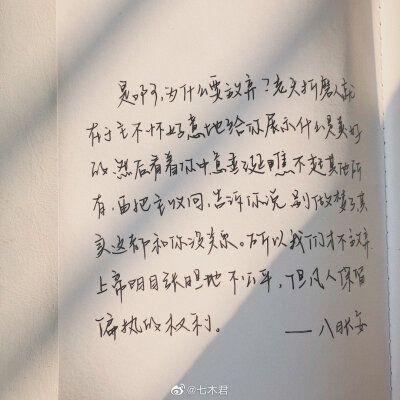 是啊,为什么要放弃?老天折磨人就
在于它不怀好意地给你展示什么是美好
的,然后看着你中意垂涎瞧不起其他所
有,再把它收回,告诉你说别做梦了其
实这都和你没关系。所以我们才不放弃
上帝明目张胆地不公平,但凡人保留
偏执的权利。
——八月长安
@七木君